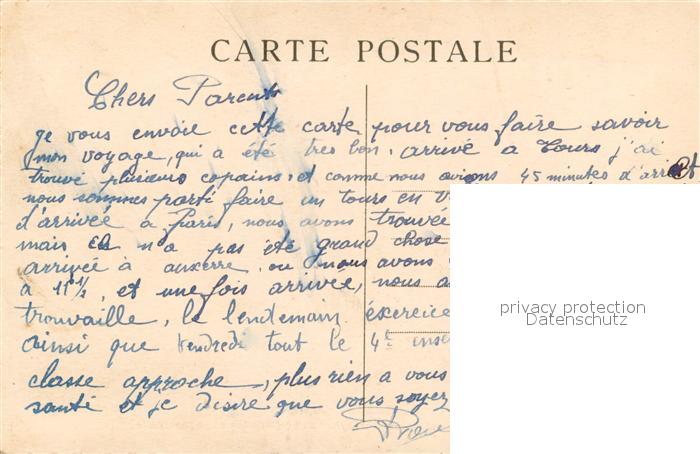 CARTE POSTALE
Chers Parents
je vous envoie cette carte pour vous faire savoir
mon voyage, qui a été très bon. arrivé a Tours j'ai
trouvé plusieurs copains, et comme nous avions 45 minutes d'arrêt
nous sommes parti faire un tours en
d'arrivée à Paris, nous avons trouvée
mais n'a pas été grand chose
arrivée à auxerre. ou nous avons
à 11 1/2, et une fois arrivée, nous
trouvaille, le lendemain, éxercice
ainsi que Vendredi tout le 4e
classe approche, plus rien a vous
santé et je désire que vous soyez
privacy protection
Datenschutz